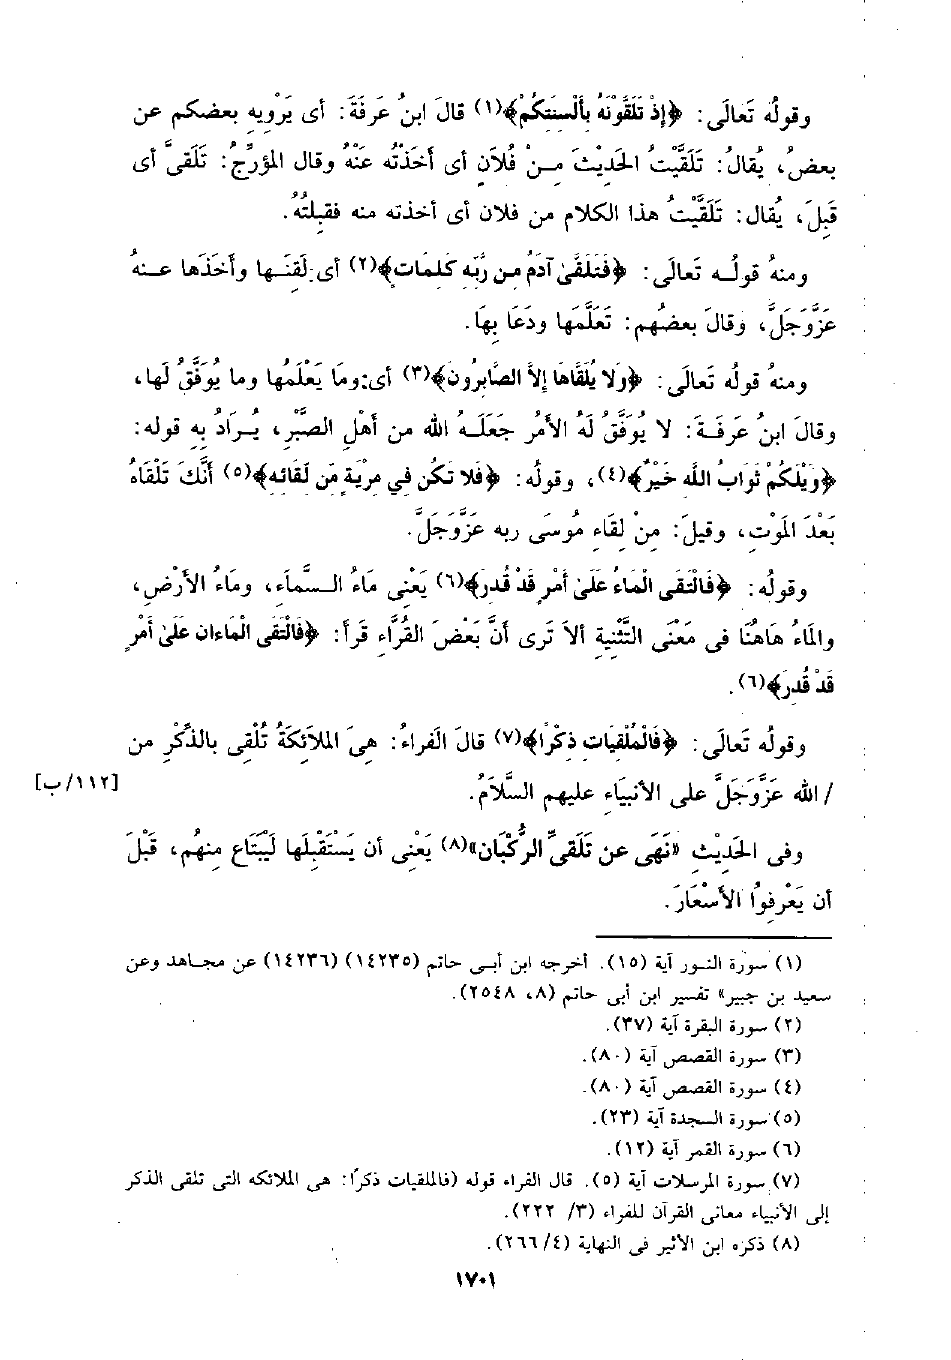 وقولُه تَعالَى: ﴿إِذْ تَلَقَّوْنَهُ بِأَلْسِنَتِكُمْ﴾(١) قالَ ابنُ عَرفَةَ: أى يَرْوِيه بعضكم عن
بعضُ، يُقالُ: تَلَقَّيْتُ الحَديْثَ مِـنْ فُلاَنٍ أى أخَذْتُه عَنْهُ وقال المؤرِّجُ: تَلَقىَّ أى
قَبِلَ، يُقال: تَلَقَّيْتُ هذا الكلام من فلان أى أخذته منه فقبلتُهُ.
ومنهُ قولُـه تَعالَى: ﴿فَتَلَقَّىٰ آدَمُ مِن رَّبِّهِ كَلِمَاتٍ﴾(٢) أى لَقِنَـها وأخَذَها عـنهُ
عَزَّوَجَلَّ، وقالَ بعضُهم: تَعَلَّمَها ودَعَا بِهَا.
ومنهُ قولُه تَعالَى: ﴿وَلا يُلَقَّاهَا إِلاَّ الصَّابِرُونَ﴾(٣) أى:ومَا يَعْلَمُها وما يُوَفَّقُ لَها،
وقالَ ابنُ عَرفَـةَ: لا يُوَفَّقُ لَهُ الأمْرُ جَعَلَـهُ الله من أهْلِ الصَّبْرِ، يُـرَادُ بِهِ قوله:
﴿وَيْلَكُمْ ثَوَابُ اللَّهِ خَيْرٌ﴾(٤)، وقولُه: ﴿فَلا تَكُن فِي مِرْيَةٍ مِّن لِّقَائِهِ﴾(٥) أنَّكَ تَلْقَاهُ
بَعْدَ المَوْتِ، وقيلَ: مِنْ لِقَاءِ مُوسَى ربه عَزَّوَجَلَّ.
وقولُه: ﴿فَالْتَقَى الْمَاءُ عَلَىٰ أَمْرٍ قَدْ قُدِرَ﴾(٦) يَعْنِى مَاءُ الـسَّماَءِ، ومَاءُ الأرْضِ،
والمَاءُ هَاهُنَا فى مَعْنَى التَّثْنِيةِ ألاَ تَرى أنَّ بَعْضَ القُرَّاءِ قَرأَ: ﴿فَالْتَقَى الْمَاءان عَلَىٰ أَمْرٍ
قَدْ قُدِرَ﴾(٦).
وقولُه تَعالَى: ﴿فَالْمُلْقِيَاتِ ذِكْرًا﴾(٧) قالَ الَفراءُ: هىَ المَلاَئِكَةُ تُلْقِى بالذِّكْرِ من
/ الله عَزَّوَجَلَّ على الأنبيَاءِ عليهم السَّلاَمُ.
[١١٢/ب]
وفى الحَديْثِ «نَهَى عن تَلَقىِّ الرُّكْبَانِ»(٨) يَعْنِى أن يَسْتَقْبِلَها لِيَبْتَاعَ مِنهُم، قَبْلَ
أن يَعْرِفوُا الأسْعَارَ.
(١) سورة النـور آية (١٥). أخرجه ابن أبـى حاتم (١٤٢٣٥) (١٤٢٣٦) عن مجـاهد وعن
سعيد بن جبير» تفسير ابن أبى حاتم (٨، ٢٥٤٨).
(٢) سورة البقرة آية (٣٧).
(٣) سورة القصص آية (٨٠).
(٤) سورة القصص آية (٨٠).
(٥) سورة السجدة آية (٢٣).
(٦) سورة القمر آية (١٢).
(٧) سورة المرسلات آية (٥). قال الفراء قوله (فالملقيات ذكرًا: هى الملائكه التى تلقى الذكر
إلى الأنبياء معانى القرآن للفراء (٣/ ٢٢٢).
(٨) ذكره ابن الأثير فى النهاية (٤/ ٢٦٦).
١٧٠١